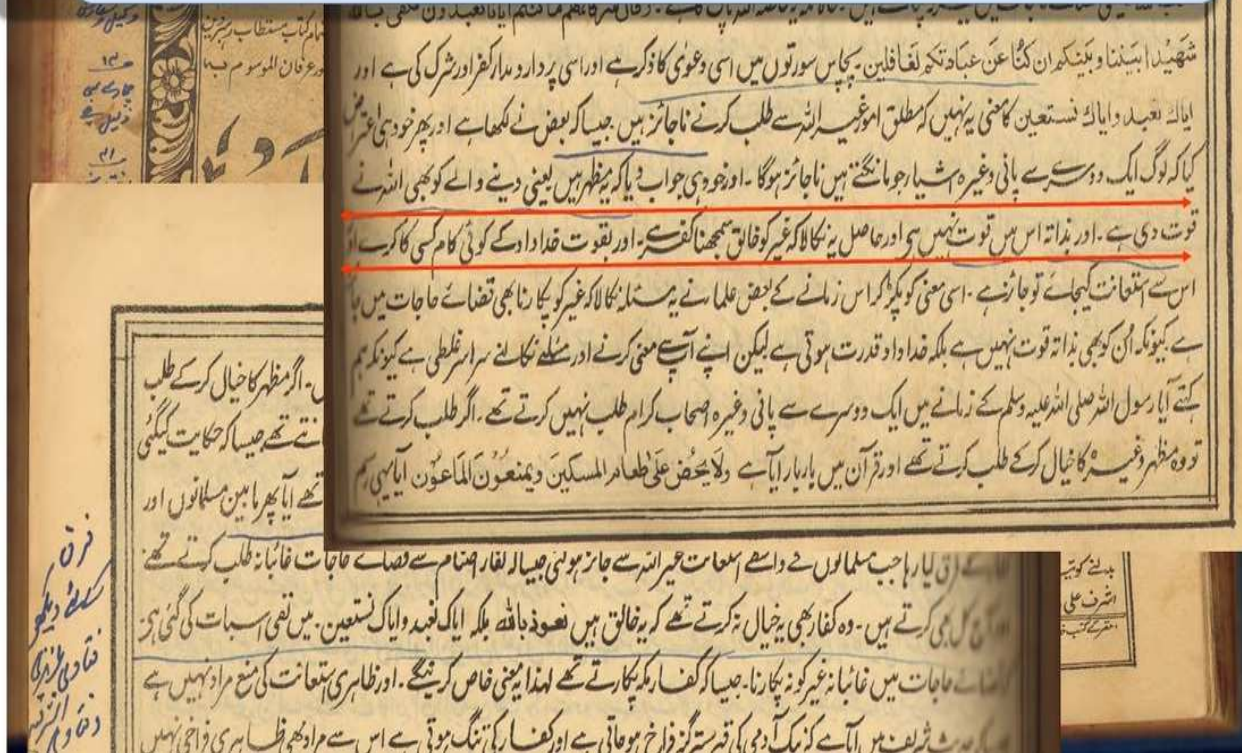 شَهِيْدًا بَيْنَنَا وَبَيْنَكُم اِن كُنَّا عَن عِبَادَتِكُم لَغَافِلِين۔ پچاس سورتوں میں اسی دعوٰی کا ذکر ہے اور اسی پر دار و مدار کفر اور شرک کی ہے اور
ایاك نعبد و ایاك نستعین کا معنی یہ نہیں کہ مطلق امور غیر اللہ سے طلب کرنے ناجائز ہیں۔ جیسا کہ بعض نے لکھا ہے اور پھر خود ہی اعتراض
کیا کہ لوگ ایک دوسرے سے پانی وغیرہ اشیار جو مانگتے ہیں ناجائز ہوگا۔ اور خود ہی جواب دیا کہ یہ مظہر ہیں یعنی دینے والے کو بھی اللہ نے
قوت دی ہے۔ اور بذاتہ اس میں قوت نہیں ہے اور حاصل یہ نکالا کہ غیر کو خالق سمجھنا کفر ہے۔ اور بقوت خداداد کے کوئی کام کسی کا کرے اور
اس سے استعانت کیجائے تو جائز ہے۔ اسی معنی کو پکڑ کر اس زمانے کے بعض علما نے یہ مسئلہ نکالا کہ غیر کو پکارنا بھی قضائے حاجات میں جا
ہے کیونکہ اُن کو بھی بذاتہ قوت نہیں ہے بلکہ خداداد قدرت ہوتی ہے لیکن اپنے آپ سے معنی کرنے اور مسئلے نکالنے سراسر غلطی ہے کیونکہ ہم
کہتے آیا رسول اللہ صلی اللہ علیہ وسلم کے زمانے میں ایک دوسرے سے پانی وغیرہ اصحاب کرام طلب نہیں کرتے تھے۔ اگر طلب کرتے تھے
تو وہ مظہر وغیرہ کا خیال کرکے طلب کرتے تھے اور قرآن میں بار بار آیا ہے ولَا یَحُضُّ عَلٰی طعام المسکین ویمنعون الماعون آیا یہی رسم
اگر مظہر کا خیال کر کے طلب
تھے جیسا کہ حکایت کیگئی
تھے آیا پھر مابین مسلمانوں اور
فرق کیا رہا جب مسلمانوں کے واسطے استعانت غیر اللہ سے جائز ہوگئی جیسا کہ کفار اصنام سے قضائے حاجات غائبانہ طلب کرتے تھے
کل بھی کرتے ہیں۔ وہ کفار بھی یہ خیال نہ کرتے تھے کہ یہ خالق ہیں نعوذ باللہ بلکہ ایاك نعبد و ایاك نستعین۔ میں نفی اس بات کی گئی ہے
حاجات میں غائبانہ غیر کو نہ پکارنا۔ جیسا کہ کفار مکہ پکارتے تھے لہٰذا یہ معنی خاص کرینگے۔ اور ظاہری استعانت کی منع مراد نہیں ہے
حدیث شریف میں آیا ہے کہ نیک آدمی کی قبر ستر گز فراخ ہوجاتی ہے اور کفار کی تنگ ہوتی ہے اس سے مراد بھی ظاہری فراخی نہیں
فرق
دیکھو
اشرف علی